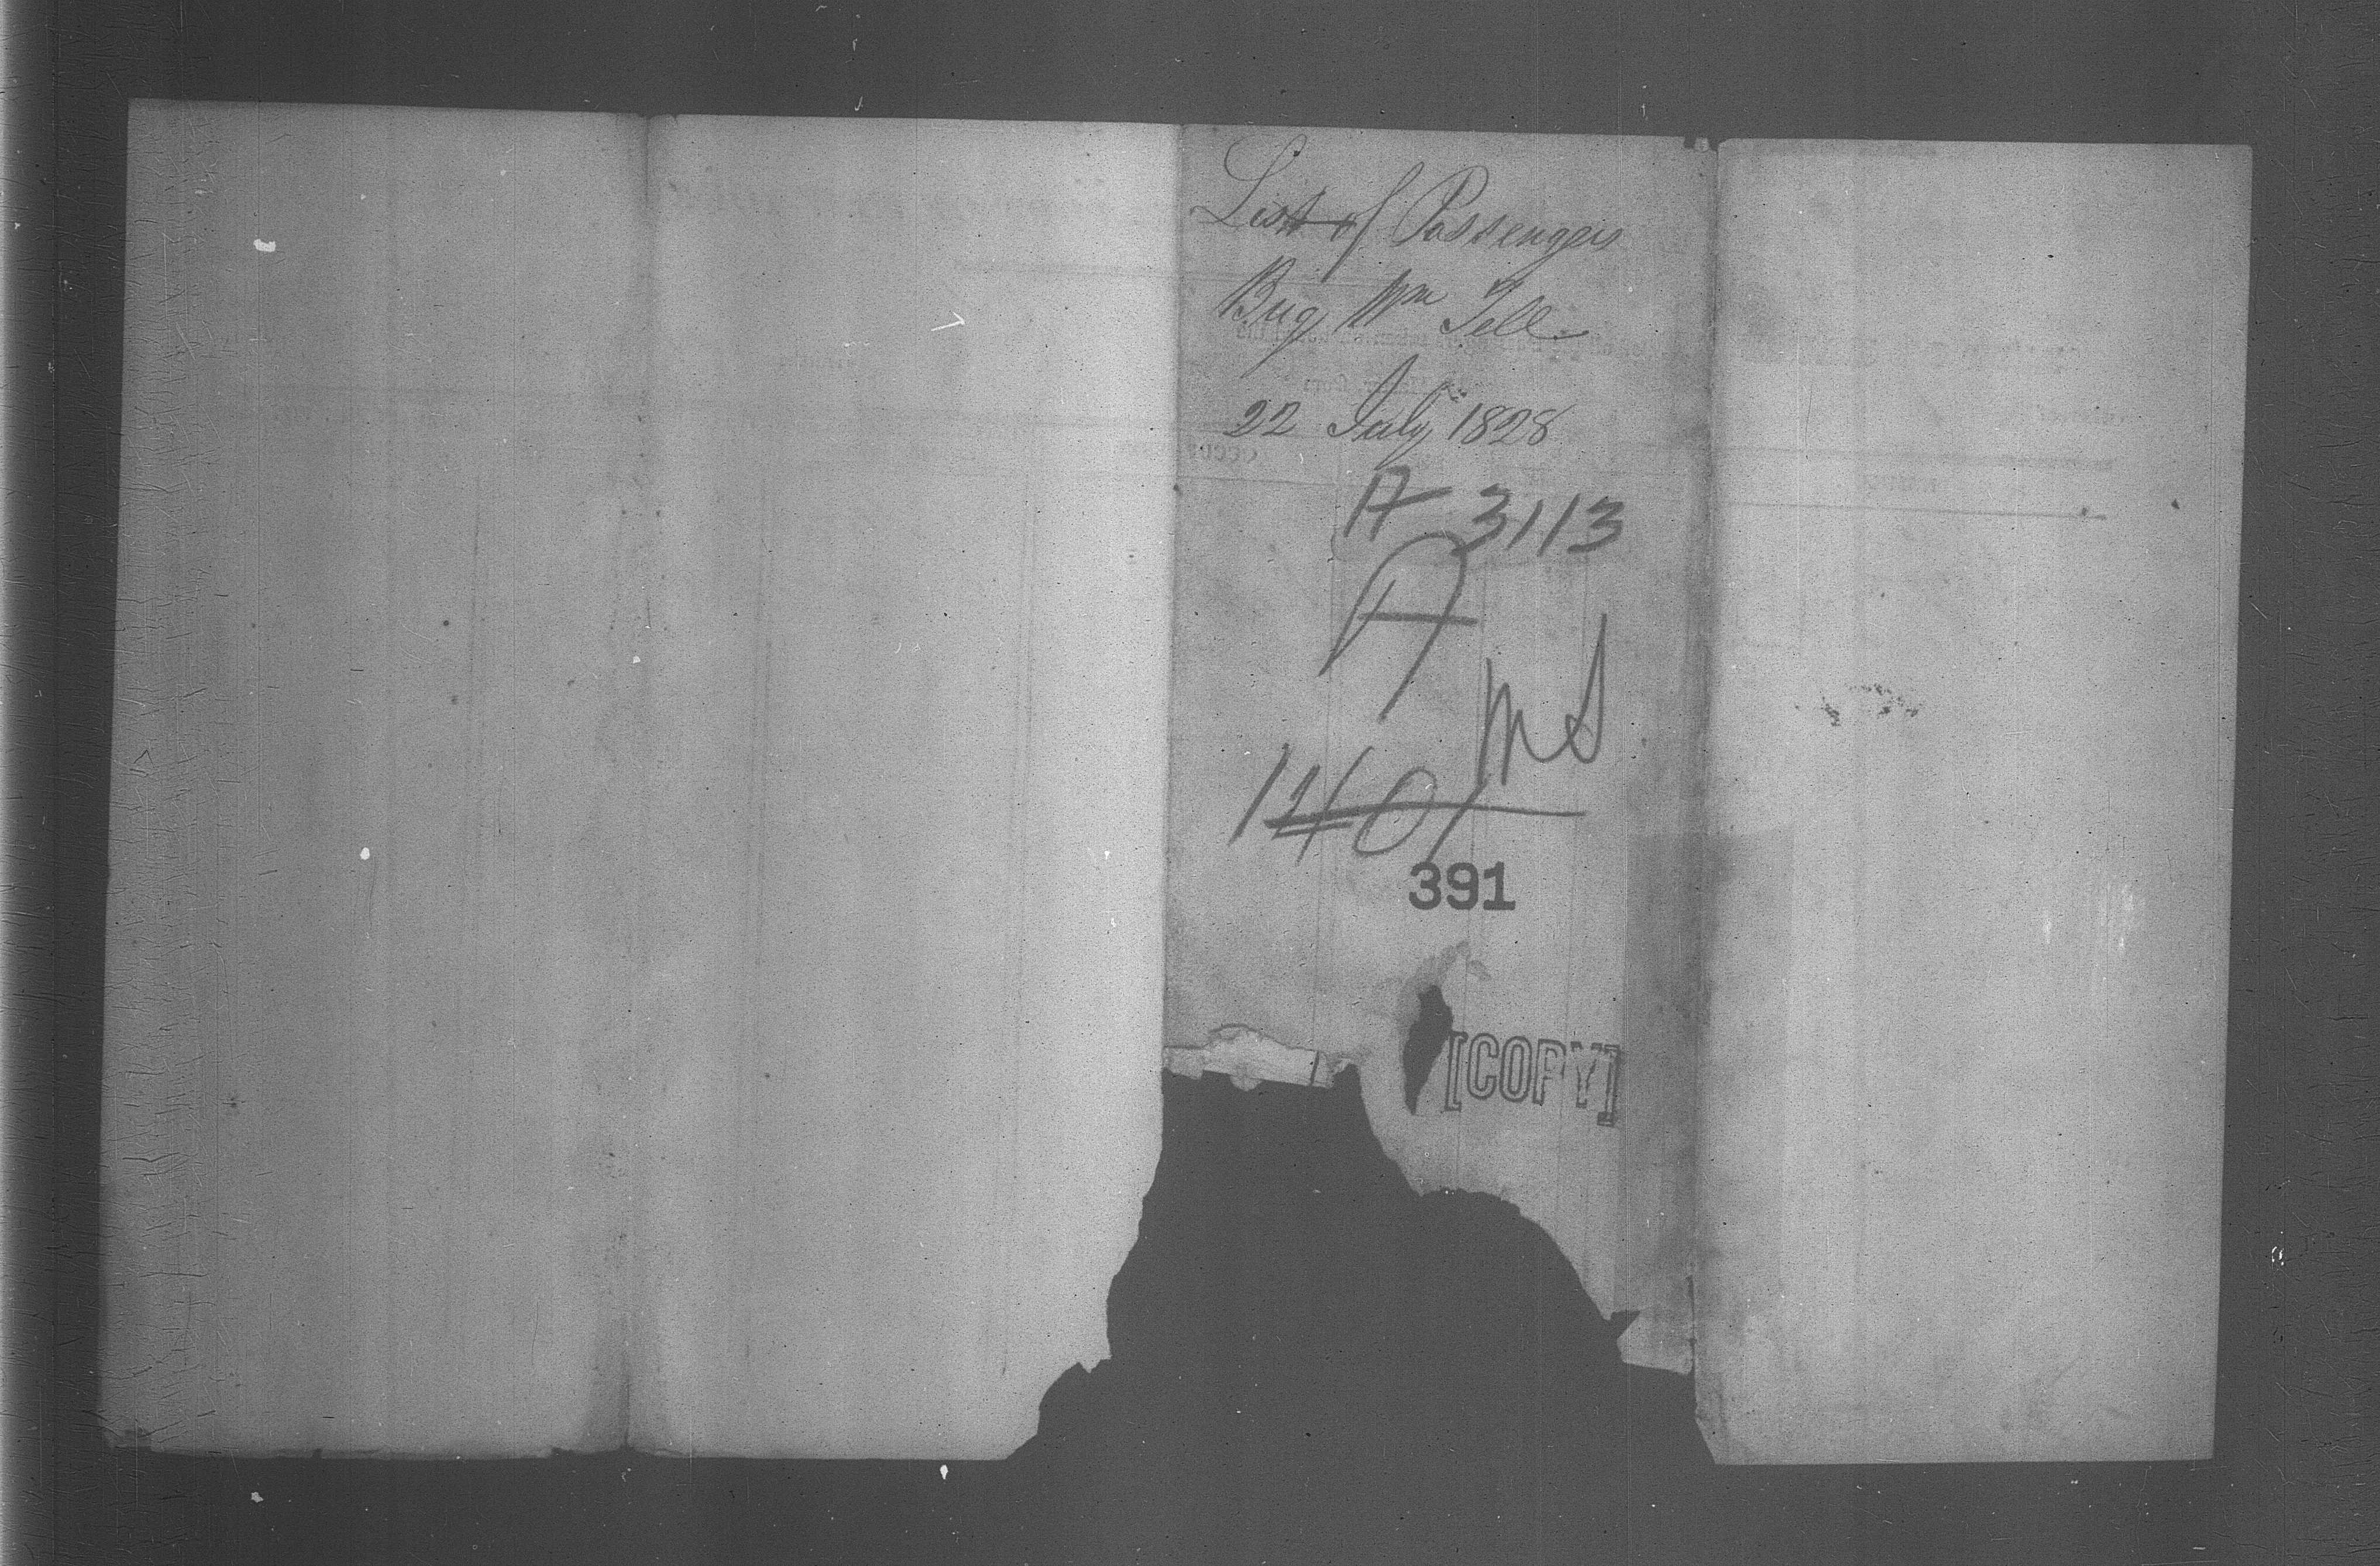 List of Passengers
Brig Wm Tell
22 July 1828
A 3113
A
MS
1401
391
[COPY]